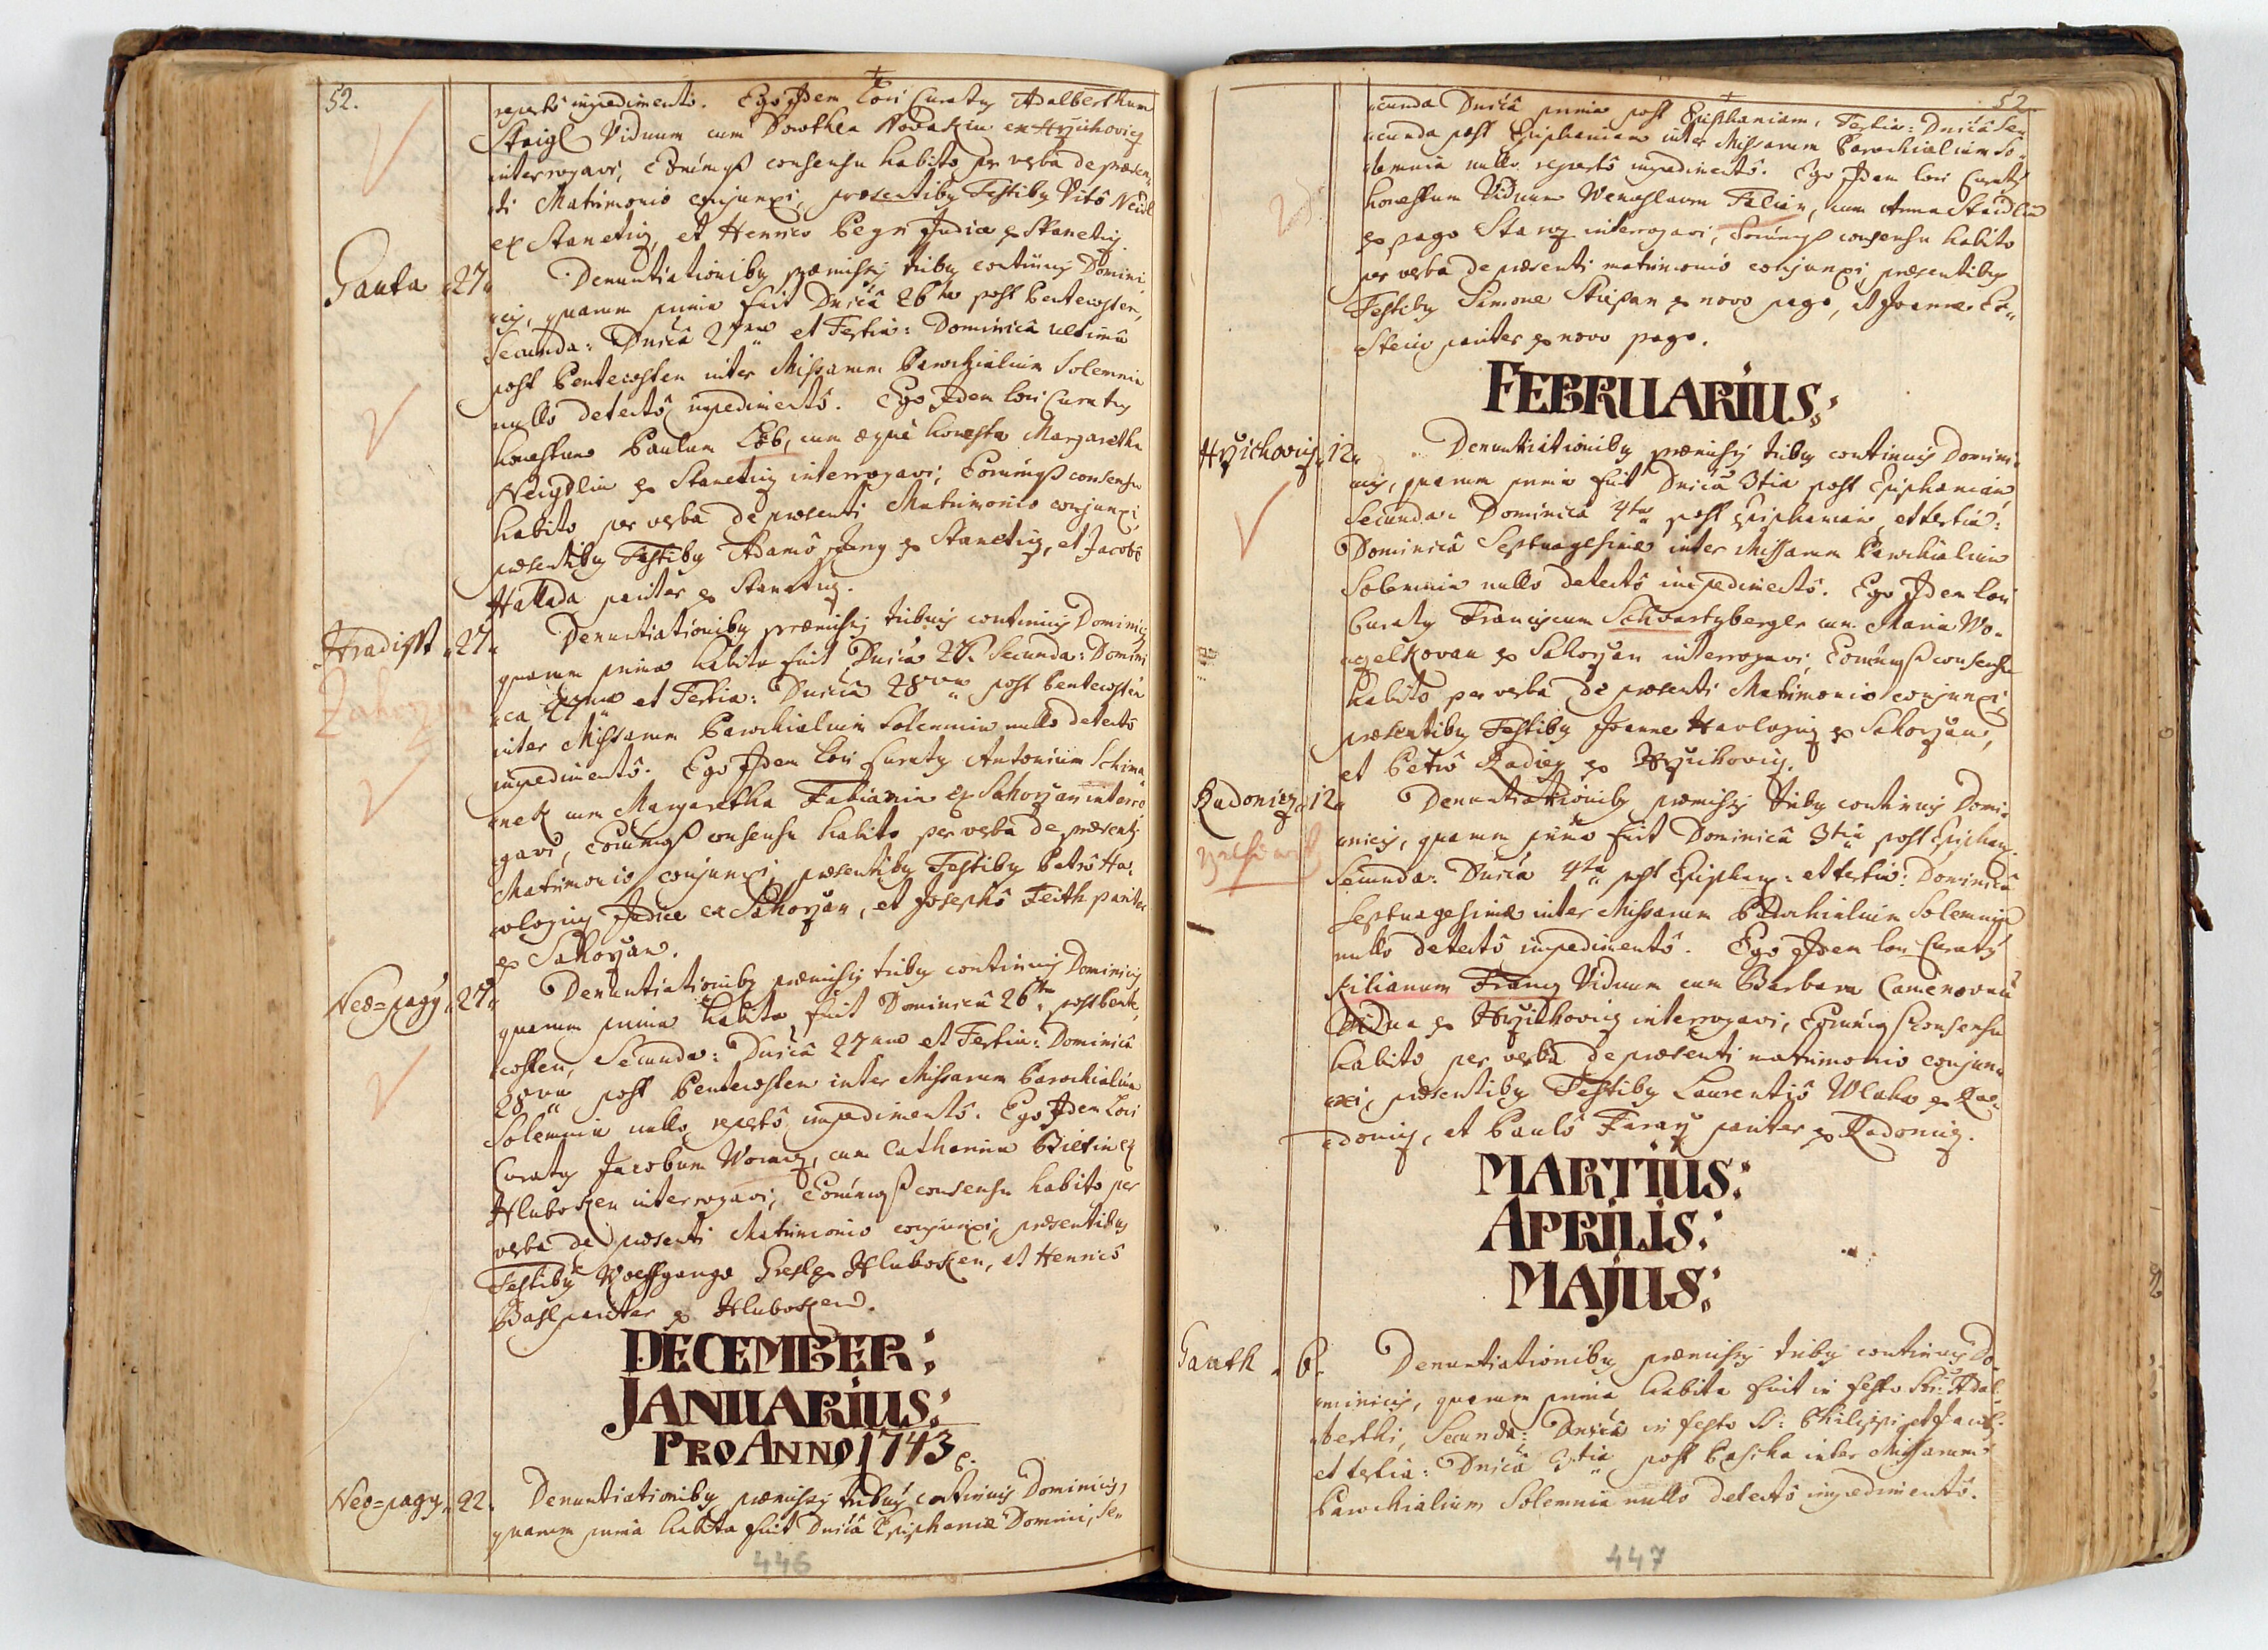 52.
repertô impedimentô. Ego Idem Loci Curatq Adalbertum
Staigl Viduum cum Dorothea Novakin ex Hrzichovicz
interrogavi, Eorumq consensu habito per verba de præsen
ti Matrimonio conjunxi, præsentibq Testibq Vitô Neidl
ex Staneticz, et Henrico Begr Judice ex Staneticz.
Gauta 27. Denuntiationibq præmissis tribq continuis Domini
cis, quarum prima fuit Dnicâ 26ta post Pentecosten,
Secunda: Dnicâ 27ma et Tertia: Dominicâ ultimâ
post Pentecosten inter Missarum Parochialium Solemnia
nullô detectô impedimentô. Ego Idem Loci Curatq
honestum Paulum Löb, cum æque honesta Margaretha
Neydlin ex Staneticz interrogavi, Eorumq consensu
habito per verba de præsenti Matrimonio conjunxi,
præsentibq Testibq Adamô Jung ex Staneticz, et Jacobô
Hallada pariter ex Staneticz.
Hradisst 27. Denuntiationibq præmissis tribus continuis Dominicis
Zahorzan
quarum prima habita fuit Dnicâ 26. Secunda: Domini
ca 27ma et Tertia: Dnicâ 28va post Pentecosten
inter Missarum Parochialium Solemnia nullô detectô
impedimentô. Ego Idem Loci Curatq Antonium Schima
nek cum Margaretha Fabianin ex Sahorzan interro
gavi, Eorumq consensu habito per verba de præsenti
Matrimonio conjunxi, præsentibq Testibq Petrô Ha
wlozicz Judice ex Sahorzan, et Josephô Feith pariter
ex Sahorzan.
Neo=pagy 27. Denuntiationibq præmissis tribq continuis Dominicis
quarum prima habita fuit Dominicâ 26ta post Pente
costen, Secunda: Dnicâ 27ma et Tertia: Dominicâ
28va post Pentecosten inter Missarum Parochialium
Solemnia nullô repertô impedimentô. Ego Idem Loci
Curatq Jacobum Woracz, cum Catharina Bielin ex
Hluboken interrogavi, Eorumq consensu habito per
verba de præsenti Matrimonio conjunxi, præsentibus
Testibq Wolffgango Gresl ex Hluboken, et Henricô
Basl pariter ex Hluboken.
DECEMBER:
JANUARIUS:
PRO ANNO 1743
Neo=pagy 22. Denuntiationibq præmissis tribus continuis Dominicis,
quarum prima habita fuit Dnicâ Epiphaniæ Domini, Se
446
52
cunda Dnicâ prima post Epiphaniam, Tertia: Dnicâ Se
cunda post Epiphaniam inter Missarum Parochialium So
lemnia nullô repertô impedimentô. Ego Idem Loci Curatq
honestum Viduum Wenceslaum Felian, cum Anna Staidlin
ex pago Starez interrogavi, Eorumq consensu habito
per verba de præsenti matrimonio conjunxi, præsentibq
Testibq Simone Stiepan ex novo pago, et Joanne
pariter ex novo pago.
FEBRUARIUS:
Hrzichovicz 12. Denuntiationibq præmissis tribq continuis Domini
cis, quarum prima fuit Dnicâ 3tia post Epiphaniam
Secunda: Dominicâ 4ta post Epiphaniam, et tertia:
Dominicâ Septuagesimæ inter Missarum Parochialium
Solemnia nullô detectô impedimentô. Ego Idem Loci
Curatq Franciscum Schvartzberger cum Maria Wo
czelkovan ex Sahorzan interrogavi, Eorumq consensu
habito per verba de præsenti Matrimonio conjunxi,
præsentibq Testibq Joanne Hawlozicz ex Sahorzan,
et Petrô Radiez ex Hrzichovicz.
Radonicz 12. Denuntiationibq præmissis tribq continuis Domi
nicis, quarum prima fuit Dominicâ 3tia post Epiphan.
Secunda: Dnicâ 4ta post Epiphan: et tertia: Dominicâ
Septuagesimæ inter Missarum Parochialium Solemnia
nullô detectô impedimentô. Ego Idem Loci Curatq
Kilianum Francz Viduum cum Barbara Camenovan
Vidua ex Hrzichovicz interrogavi, Eorumq consensu
habito per verba de præsenti matrimonio conjun
xi, præsentibq Testibq Laurentiô Wlaka ex Ra
donicz, et Paulô Faray pariter ex Radonicz.
MARTIUS:
APRILIS:
MAJUS:
Gauth 6. Denuntiationibq præmissis tribq continuis Do
minicis, quarum prima habita fuit in festo Sti: Adal
berthi, Secunda: Dnicâ in festo S: Philippi et Jacobi
et tertia: Dnicâ 3tia post Pascha inter Missarum
Parochialium Solemnia nullô detectô impedimentô.
447